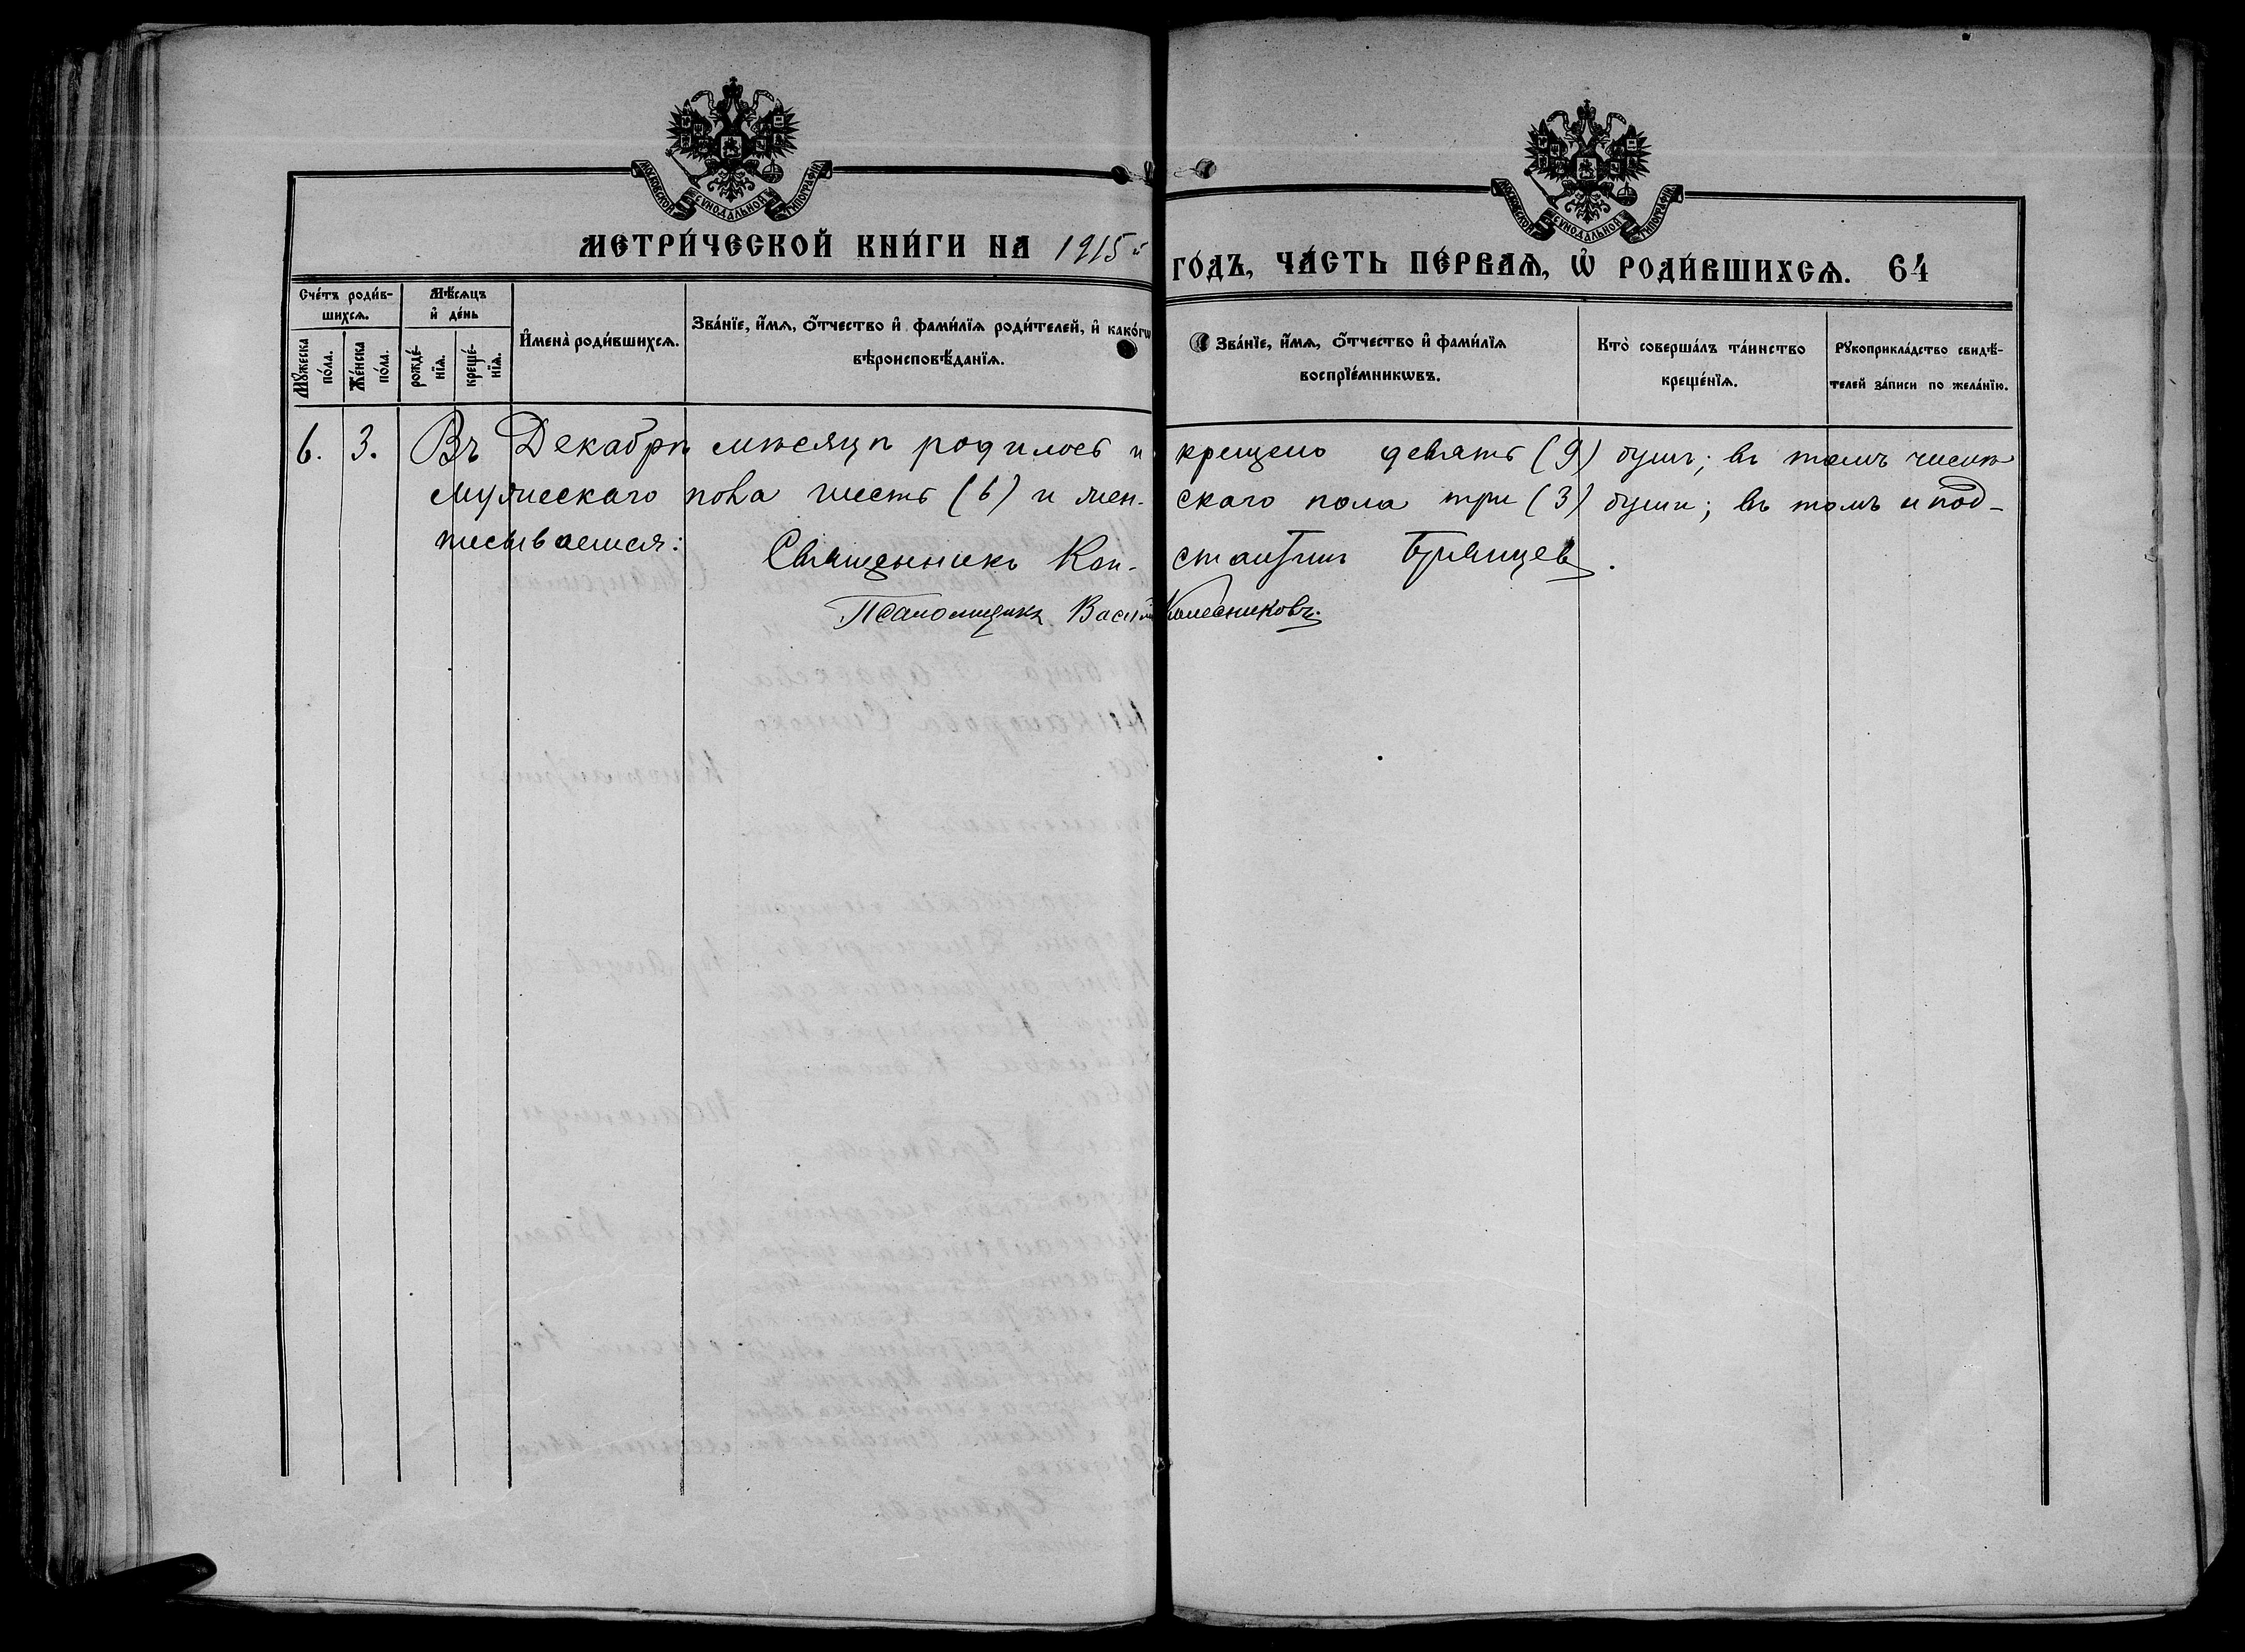 МОСКОВСКОЙ СѴНОДАЛЬНОЙ ТИПОГРАФІИ
МОСКОВСКОЙ СѴНОДАЛЬНОЙ ТИПОГРАФІИ
МЕТРИ́ЧЕСКОЙ КНИ́ГИ НА 1915й ГО́ДЪ, ЧА́СТЬ ПЕ́РВАѦ, Ѡ҆ РОДИ́ВШИХСѦ. 64
Сче́тъ роди́в-
шихсѧ.
Мꙋ́жеска
по́ла.
Же́нска
по́ла.
Мѣ́сѧцъ
и҆ де́нь
рожде́-
нїѧ.
креще́-
нїѧ.
И҆мена̀ роди́вшихсѧ.
Зва́нїе, и҆́мѧ, ѻ҆́тчество и҆ фами́лїѧ роди́телей, и҆ како́гѡ
вѣроисповѣ́данїѧ.
Зва́нїе, и҆́мѧ, ѻ҆́тчество и҆ фами́лїѧ
воспрїе́мникѡвъ.
Кто̀ соверша́лъ та́инство
креще́нїѧ.
Рꙋкоприкла́дство свидѣ́-
телей за́писи по жела́нїю.
6. 3. Въ Декабрѣ мѣсяцѣ родилось и крещено девять (9) душъ; въ томъ числѣ
мужескаго пола шесть (6) и жен- скаго пола три (3) души; въ томъ и под-
писываемся:
Священникъ Кон- стантинъ Брянцев.
Псаломщикъ Василій Колесниковъ.